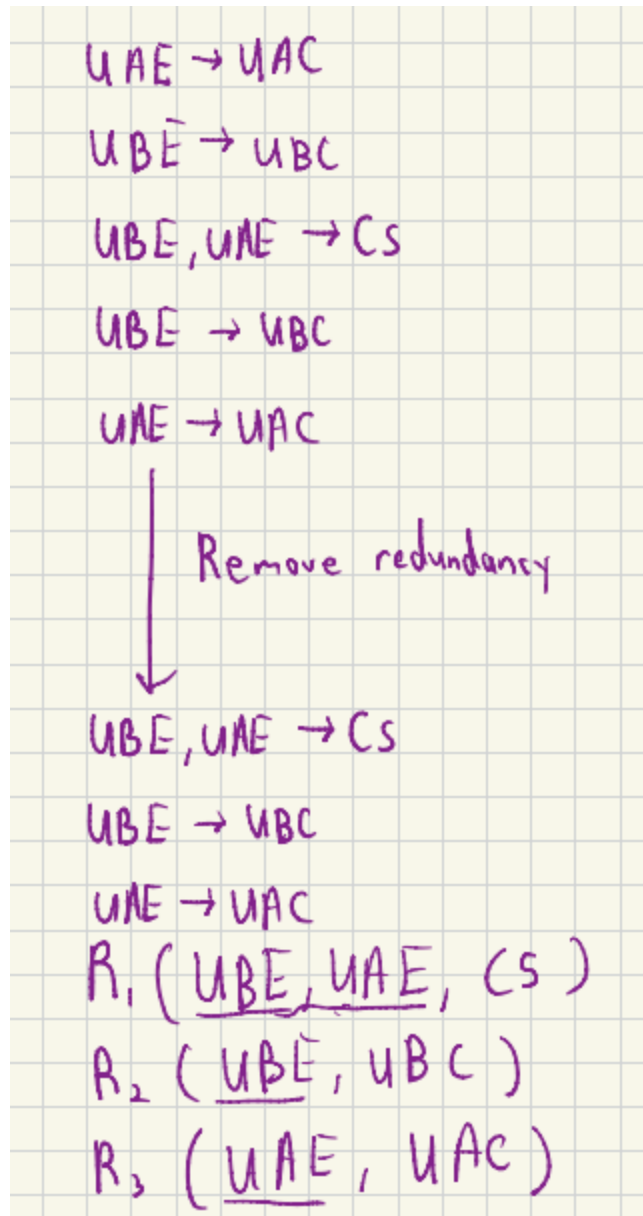 UAE → UAC
UBE → UBC
UBE, UAE → CS
UBE → UBC
UAE → UAC
Remove redundancy
UBE, UAE → CS
UBE → UBC
UAE → UAC
R₁ ( UBE, UAE, CS )
R₂ ( UBE, UBC )
R₃ ( UAE, UAC )